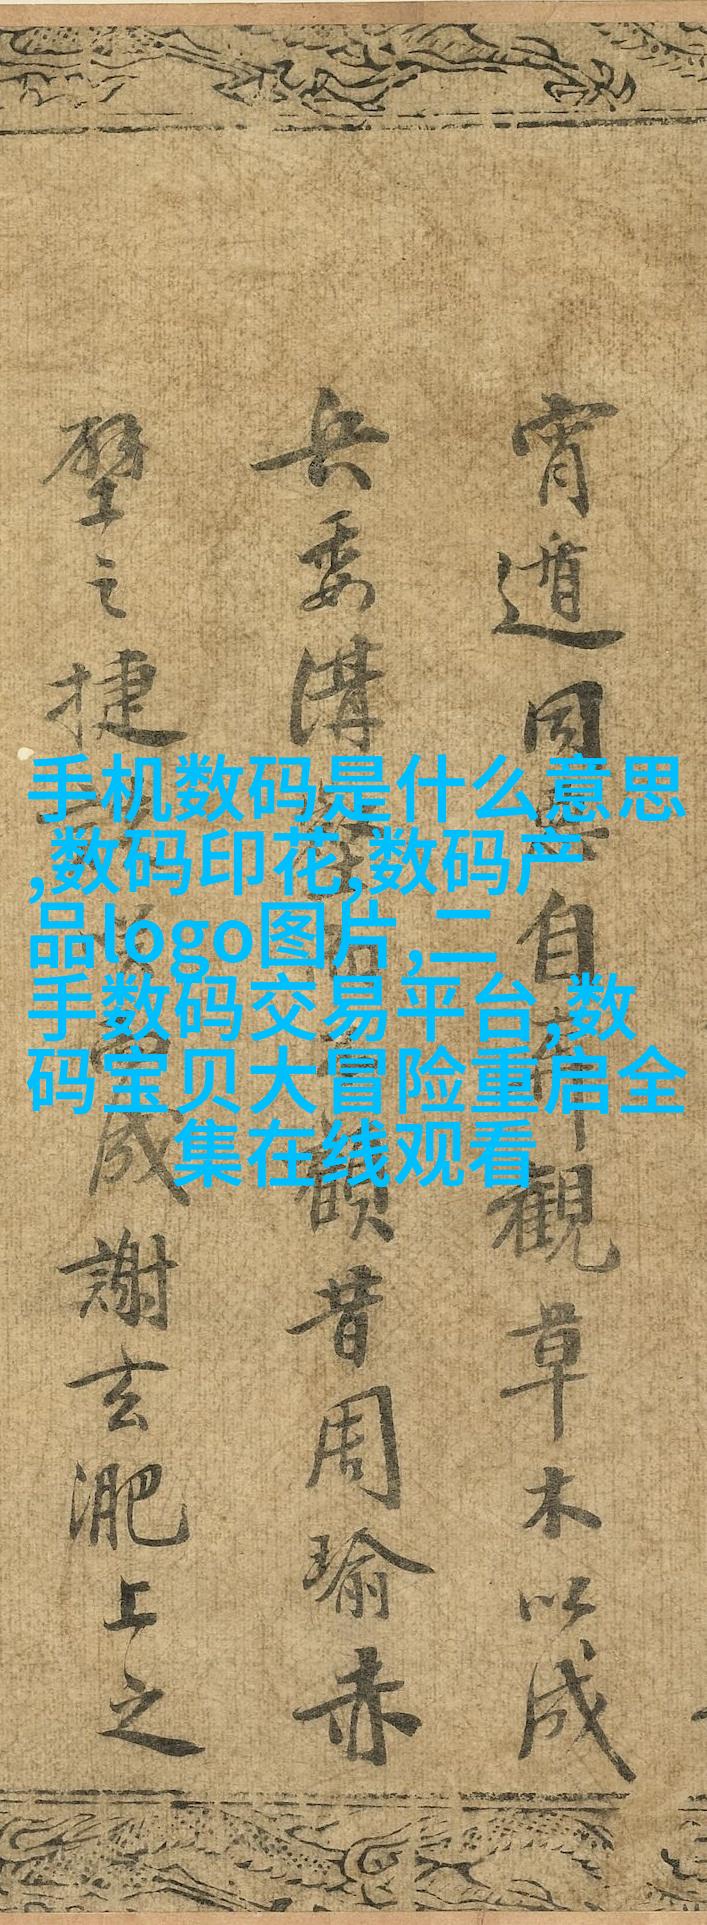 宵遁同自觀草木以成
兵委溝昔周瑜赤
壁之捷成謝玄淝上之
手机数码是什么意思
,数码印花,数码产
品logo图片,二
手数码交易平台,数
码宝贝大冒险重启全
集在线观看